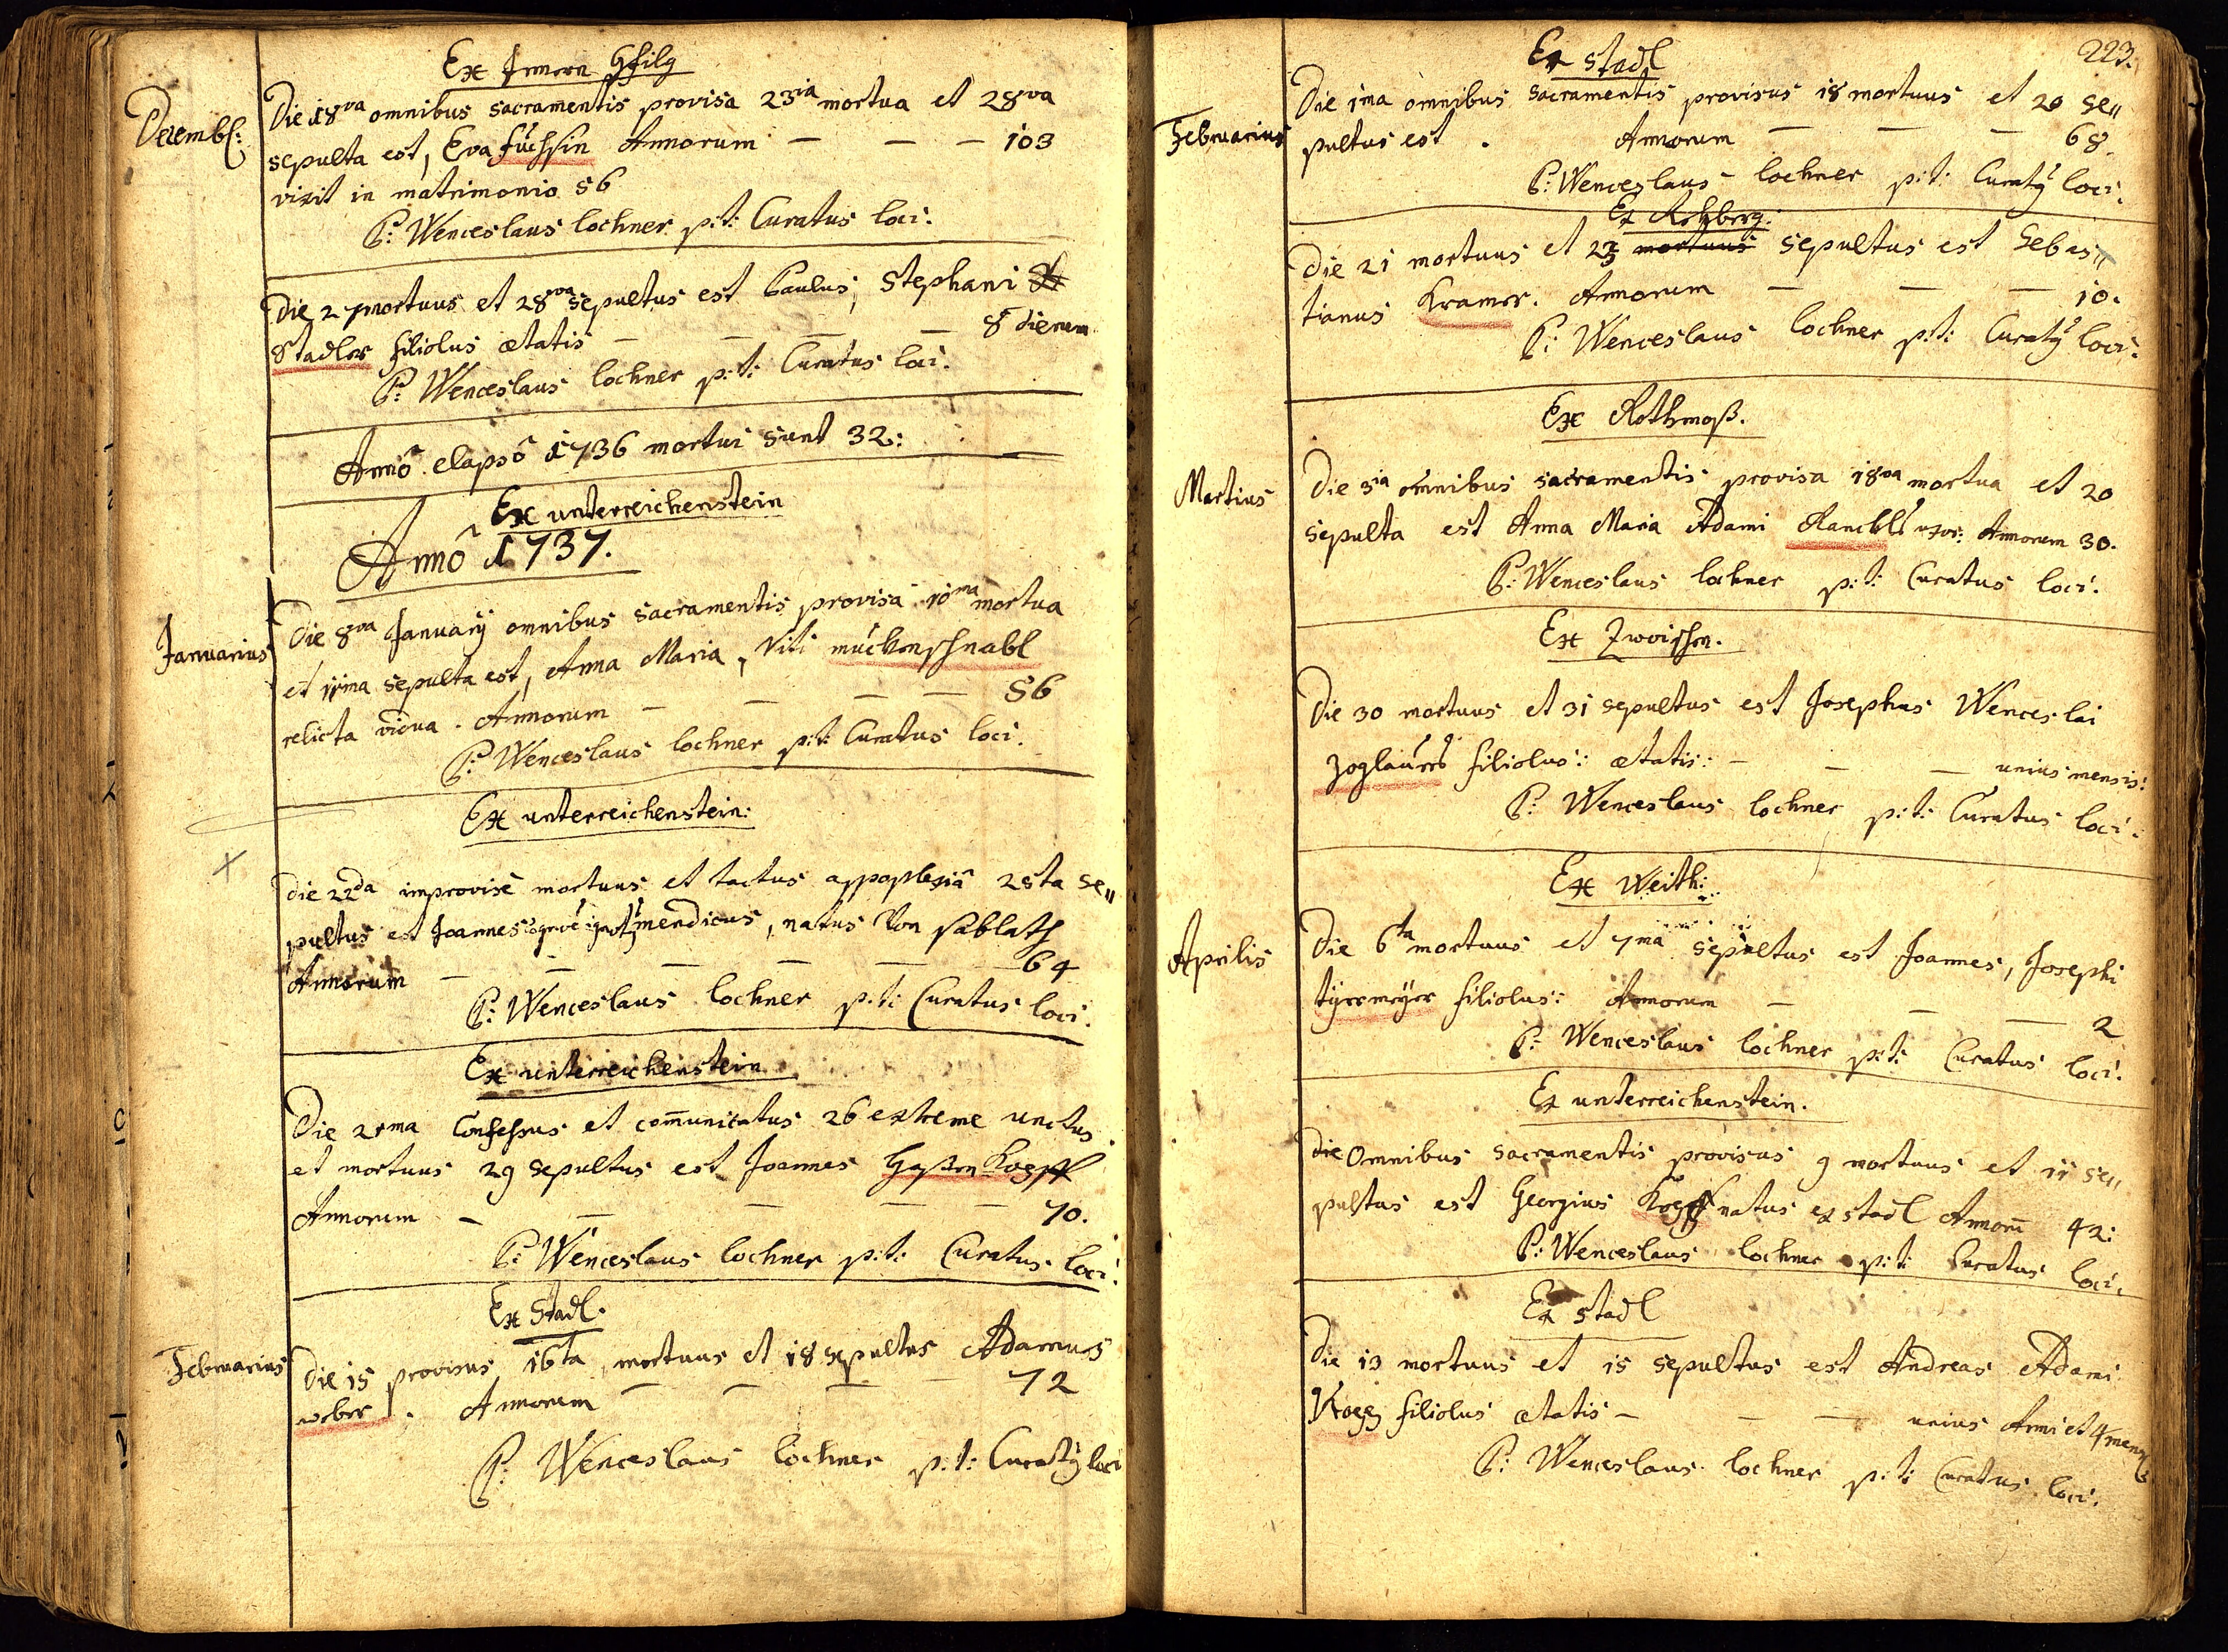 Ex Innern Gfilg
Decembr:
Die 18va omnibus sacramentis provisa 23ia mortua et 28va
sepulta est, Eva Füchsin Annorum — — — 103
vixit in matrimonio 56
P: Wenceslaus lochner p:t: Curatus loci.
Die 27 mortuus et 28va sepultus est Paulus, Stephani
Stadler filiolus ætatis — — — 8 dierum
P: Wenceslaus lochner p:t: Curatus loci.
Annô elapsô 1736 mortui sunt 32:
Ex unterreichenstein
Annô 1737.
Januarius
Die 8va Januarij omnibus sacramentis provisa 10ma mortua
et 11ma sepulta est, Anna Maria, Viti mückenschnabl
relicta vidua. Annorum — — — — 56
P: Wenceslaus lochner p:t: Curatus loci.
Ex unterreichenstein:
die 22da improvisè mortuus et tactus appoplexiâ 25ta se„
pultus est Joannes mendicus, natus Von sablath
Annorum — — — — — 64
P: Wenceslaus lochner p:t: Curatus loci.
Ex unterreichenstein
Die 21ma Confessus et com̄unicatus 26 extreme unctus
et mortuus 29 sepultus est Joannes Gassen Koepff
Annorum — — — — — 70.
P: Wenceslaus lochner p:t: Curatus loci.
Ex Stadl.
Februarius
Die 15 provisus 16ta mortuus et 18 sepultus Adamus
weber. Annorum — — — — 72
P: Wenceslaus lochner p:t: Curatq loci
223.
Ex stadl
Februarius
Die 1ma omnibus sacramentis provisus 18 mortuus et 20 se„
pultus est. Annorum — — — 68.
P: Wenceslaus lochner p:t: Curatq loci.
Ex Rehberg.
Die 21 mortuus et 23 mortuus sepultus est Sebas„
tianus Kramer. Annorum — — — 10.
P: Wenceslaus lochner p:t: Curatq loci.
Ex Rothmoß.
Martius
Die 3ia omnibus sacramentis provisa 18va mortua et 20
sepulta est Anna Maria Adami Ranckl uxor: Annorum 30.
P: Wenceslaus lochner p:t: Curatus loci.
Ex Zwoischen.
Die 30 mortuus et 31 sepultus est Josephus Wenceslai
Zoglauers filiolus: ætatis: — — — unius mensis:
P: Wenceslaus lochner p:t: Curatus loci.
Ex Weith:
Aprilis
Die 6ta mortuus et 7ma sepultus est Joannes, Josephi
tyermeyer filiolus: Annorum — — — 2
P: Wenceslaus lochner p:t: Curatus loci.
Ex unterreichenstein.
die Omnibus sacramentis provisus 9 mortuus et 11 se„
pultus est Georgius Koepff natus ex stadl Annorū 42:
P: Wenceslaus lochner p:t: Curatus loci.
Ex stadl
Die 13 mortuus et 15 sepultus est Andreas Adami
filiolus ætatis — — — unius Anni et 4 mens
P: Wenceslaus lochner p:t: Curatus loci.